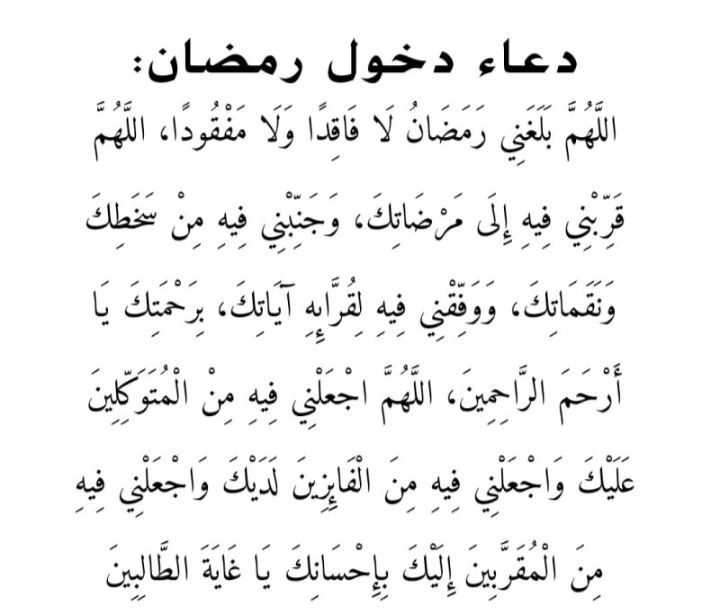 دعاء دخول رمضان:
اللَّهُمَّ بَلَغَنِي رَمَضَانُ لَا فَاقِدًا وَلَا مَفْقُودًا، اللَّهُمَّ
قَرِّبْنِي فِيهِ إِلَى مَرْضَاتِكَ، وَجَنِّبْنِي فِيهِ مِنْ سَخَطِكَ
وَنَقَمَاتِكَ، وَوَفِّقْنِي فِيهِ لِقُرَّابِهِ آيَاتِكَ، بِرَحْمَتِكَ يَا
أَرْحَمَ الرَّاحِمِينَ، اللَّهُمَّ اجْعَلْنِي فِيهِ مِنْ الْمُتَوَكِّلِينَ
عَلَيْكَ وَاجْعَلْنِي فِيهِ مِنَ الْفَايِزِينَ لَدَيْكَ وَاجْعَلْنِي فِيهِ
مِنَ الْمُقَرَّبِينَ إِلَيْكَ بِإِحْسَانِكَ يَا غَايَةَ الطَّالِبِينَ